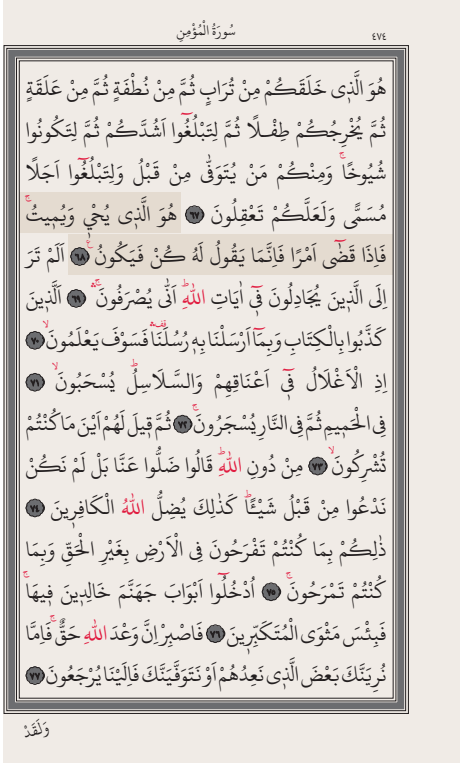 سُورَةُ الْمُؤْمِنِ ٤٧٤
هُوَ الَّذِى خَلَقَكُمْ مِنْ تُرَابٍ ثُمَّ مِنْ نُطْفَةٍ ثُمَّ مِنْ عَلَقَةٍ
ثُمَّ يُخْرِجُكُمْ طِفْلًا ثُمَّ لِتَبْلُغُٓوا اَشُدَّكُمْ ثُمَّ لِتَكُونُوا
شُيُوخًاۚ وَمِنْكُمْ مَنْ يُتَوَفّٰى مِنْ قَبْلُ وَلِتَبْلُغُٓوا اَجَلًا
مُسَمًّى وَلَعَلَّكُمْ تَعْقِلُونَ ﴿٦٧﴾ هُوَ الَّذِى يُحْيٖ وَيُمٖيتُۚ
فَاِذَا قَضٰٓى اَمْرًا فَاِنَّمَا يَقُولُ لَهُ كُنْ فَيَكُونُ۟ ﴿٦٨﴾ اَلَمْ تَرَ
اِلَى الَّذٖينَ يُجَادِلُونَ فٖٓى اٰيَاتِ اللّٰهِؕ اَنّٰى يُصْرَفُونَۚۛ ﴿٦٩﴾ اَلَّذٖينَ
كَذَّبُوا بِالْكِتَابِ وَبِمَٓا اَرْسَلْنَا بِهٖ رُسُلَنَا۠ فَسَوْفَ يَعْلَمُونَۙ ﴿٧٠﴾
اِذِ الْاَغْلَالُ فٖٓى اَعْنَاقِهِمْ وَالسَّلَاسِلُؕ يُسْحَبُونَۙ ﴿٧١﴾
فِى الْحَمٖيمِ ثُمَّ فِى النَّارِ يُسْجَرُونَۚ ﴿٧٢﴾ ثُمَّ قٖيلَ لَهُمْ اَيْنَ مَا كُنْتُمْ
تُشْرِكُونَۙ ﴿٧٣﴾ مِنْ دُونِ اللّٰهِؕ قَالُوا ضَلُّوا عَنَّا بَلْ لَمْ نَكُنْ
نَدْعُوا مِنْ قَبْلُ شَيْـًٔاؕ كَذٰلِكَ يُضِلُّ اللّٰهُ الْكَافِرٖينَ ﴿٧٤﴾
ذٰلِكُمْ بِمَا كُنْتُمْ تَفْرَحُونَ فِى الْاَرْضِ بِغَيْرِ الْحَقِّ وَبِمَا
كُنْتُمْ تَمْرَحُونَۚ ﴿٧٥﴾ اُدْخُلُٓوا اَبْوَابَ جَهَنَّمَ خَالِدٖينَ فٖيهَاۚ
فَبِئْسَ مَثْوَى الْمُتَكَبِّرٖينَ ﴿٧٦﴾ فَاصْبِرْ اِنَّ وَعْدَ اللّٰهِ حَقٌّۚ فَاِمَّا
نُرِيَنَّكَ بَعْضَ الَّذٖى نَعِدُهُمْ اَوْ نَتَوَفَّيَنَّكَ فَاِلَيْنَا يُرْجَعُونَ ﴿٧٧﴾
وَلَقَدْ